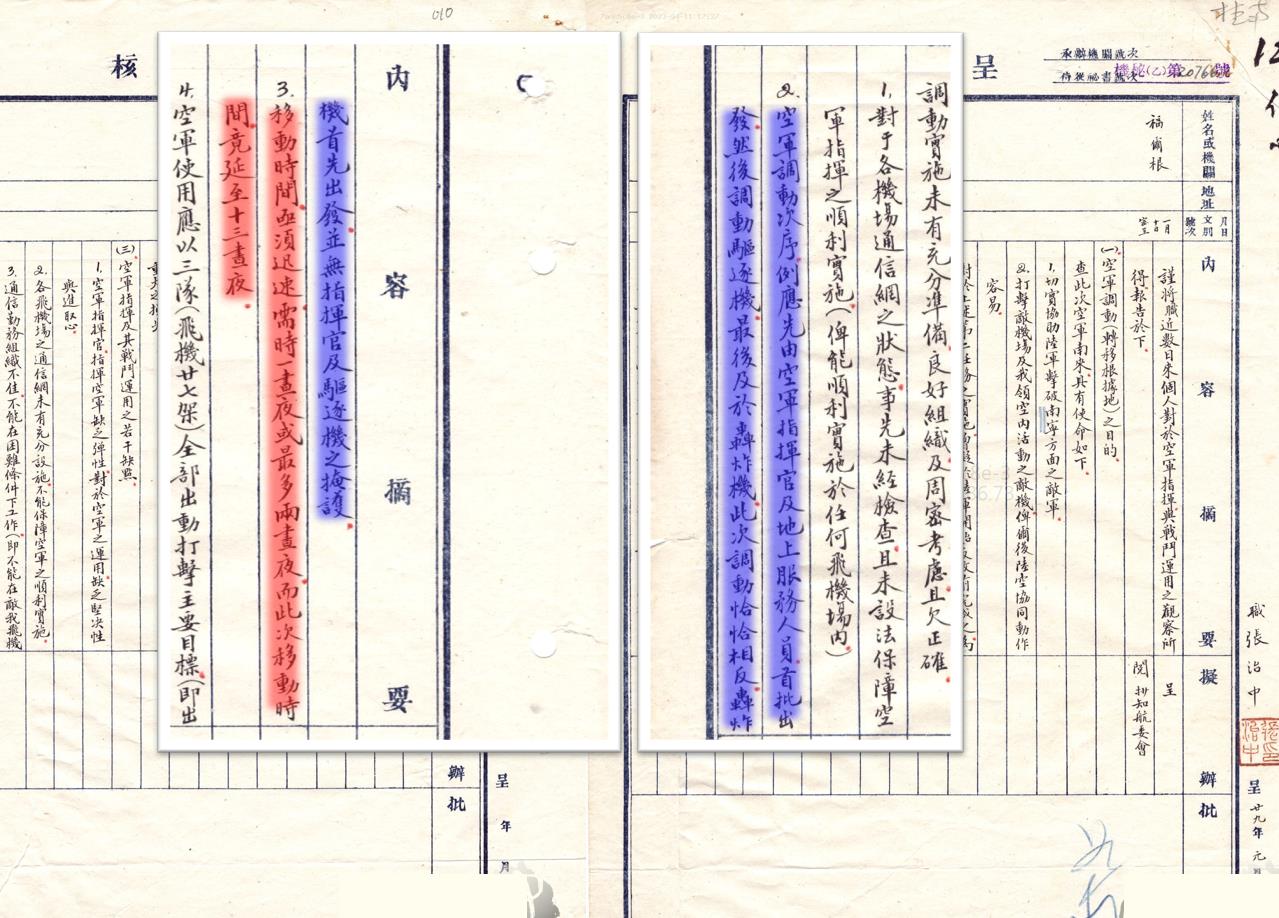 呈
核
承辦機關號次
侍從祕書號次
機秘(乙)第
號
010
姓名或機關
地址
福爾根
內容摘要
擬辦
批
謹將職近數日來個人對於空軍指揮與戰鬥運用之觀察所
得報告於下.
(一)空軍調動(轉移根據地)之目的.
查此次空軍南來具有使命如下.
1.切實協助陸軍擊破南寧方面之敵軍.
2.打擊敵機場及我領空內活動之敵機俾爾後陸空協同動作
容易.
呈
閱 抄知航委會
職張治中
呈
廿九年元
調動實施未有充分準備良好組織及周密考慮且欠正確.
1.對于各機場通信網之狀態事先未經檢查且未設法保障空
軍指揮之順利實施(俾能順利實施於任何飛機場內)
2.空軍調動次序例應先由空軍指揮官及地上服務人員首批出
發然後調動驅逐機最後及於轟炸機此次調動恰恰相反轟炸
內容摘要
機首先出發並無指揮官及驅逐機之掩護.
3.移動時間亟須迅速需時一晝夜或最多兩晝夜而此次移動時
間竟延至十三晝夜.
4.空軍使用應以三隊(飛機廿七架)全部出動打擊主要目標(即出
(三)空軍指揮及其戰鬥運用之若干缺點.
1.空軍指揮官指揮空軍缺乏彈性對於空軍之運用缺乏堅決性
與進取心.
2.各飛機場之通信網未有充分設施不能保障空軍之順利實施.
3.通信勤務組織不佳不能在困難條件下工作(即不能在敵我飛機
辦
批
呈
年
月